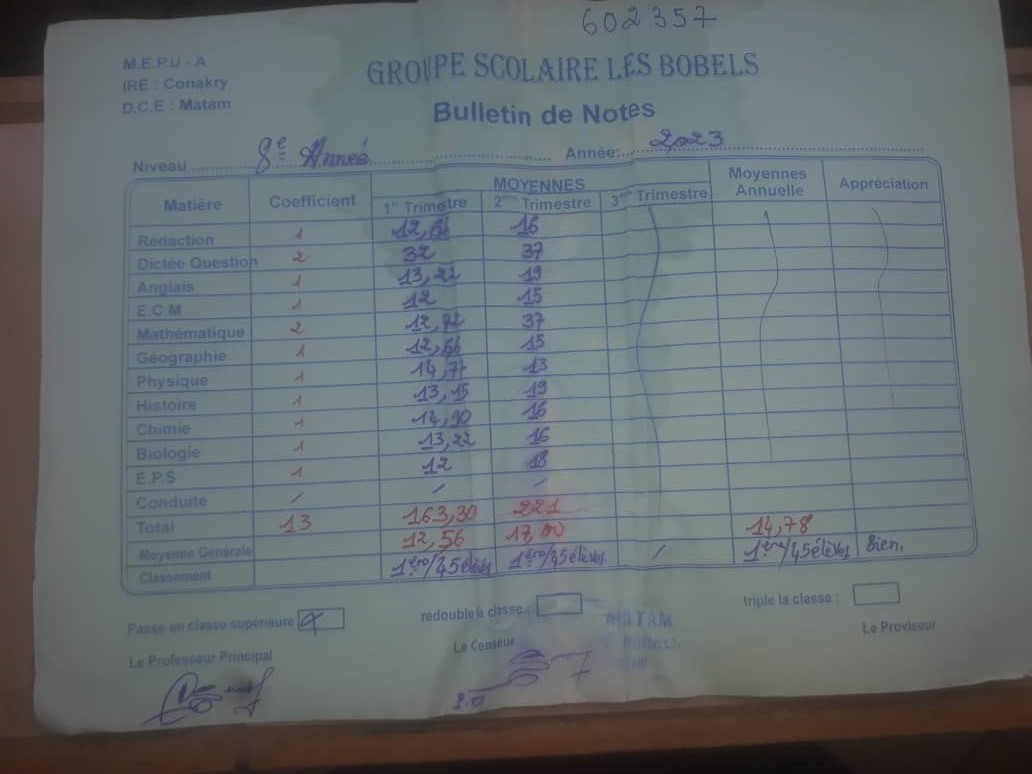 602357
M.E.P.U - A
IRE : Conakry
D.C.E : Matam
GROUPE SCOLAIRE LES BOBELS
Bulletin de Notes
Niveau 8e Année Année: 2023
Matière Coefficient MOYENNES Moyennes Annuelle Appréciation
1er Trimestre 2ème Trimestre 3ème Trimestre
Rédaction 1 16
Dictée Question 2 32 37
Anglais 1 13,22 19
E.C.M 1 12 15
Mathématique 2 12,72 37
Géographie 1 12,56 15
Physique 1 14,77 13
Histoire 1 13,15 19
Chimie 1 14,90 16
Biologie 1 13,22 16
E.P.S 1 12 18
Conduite / / /
Total 13 163,30 221
Moyenne Générale 12,56 17,00 14,78
Classement 1ère/45élèves 1ère/45élèves / 1ère/45élèves Bien.
Passe en classe supérieure redouble la classe : triple la classe :
Le Professeur Principal Le Censeur Le Proviseur
MATAM
BOBELS
P.O